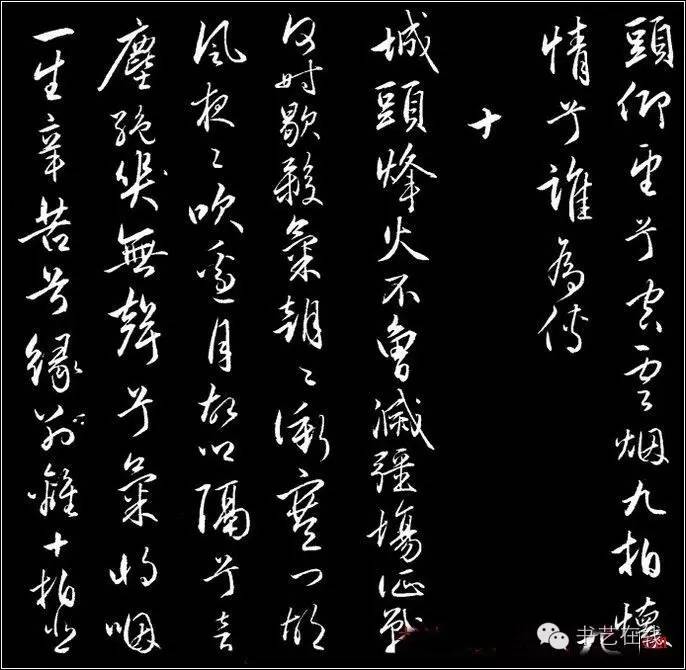 頭仰望兮空雲烟九拍懷
情兮誰為傳
十
城頭烽火不曾滅疆場征戰
何時歇殺氣朝〻衝塞門胡
風夜〻吹邊月故鄉隔兮音
塵絕哭無聲兮氣將咽
一生辛苦兮緣別離十拍悲
书艺在线